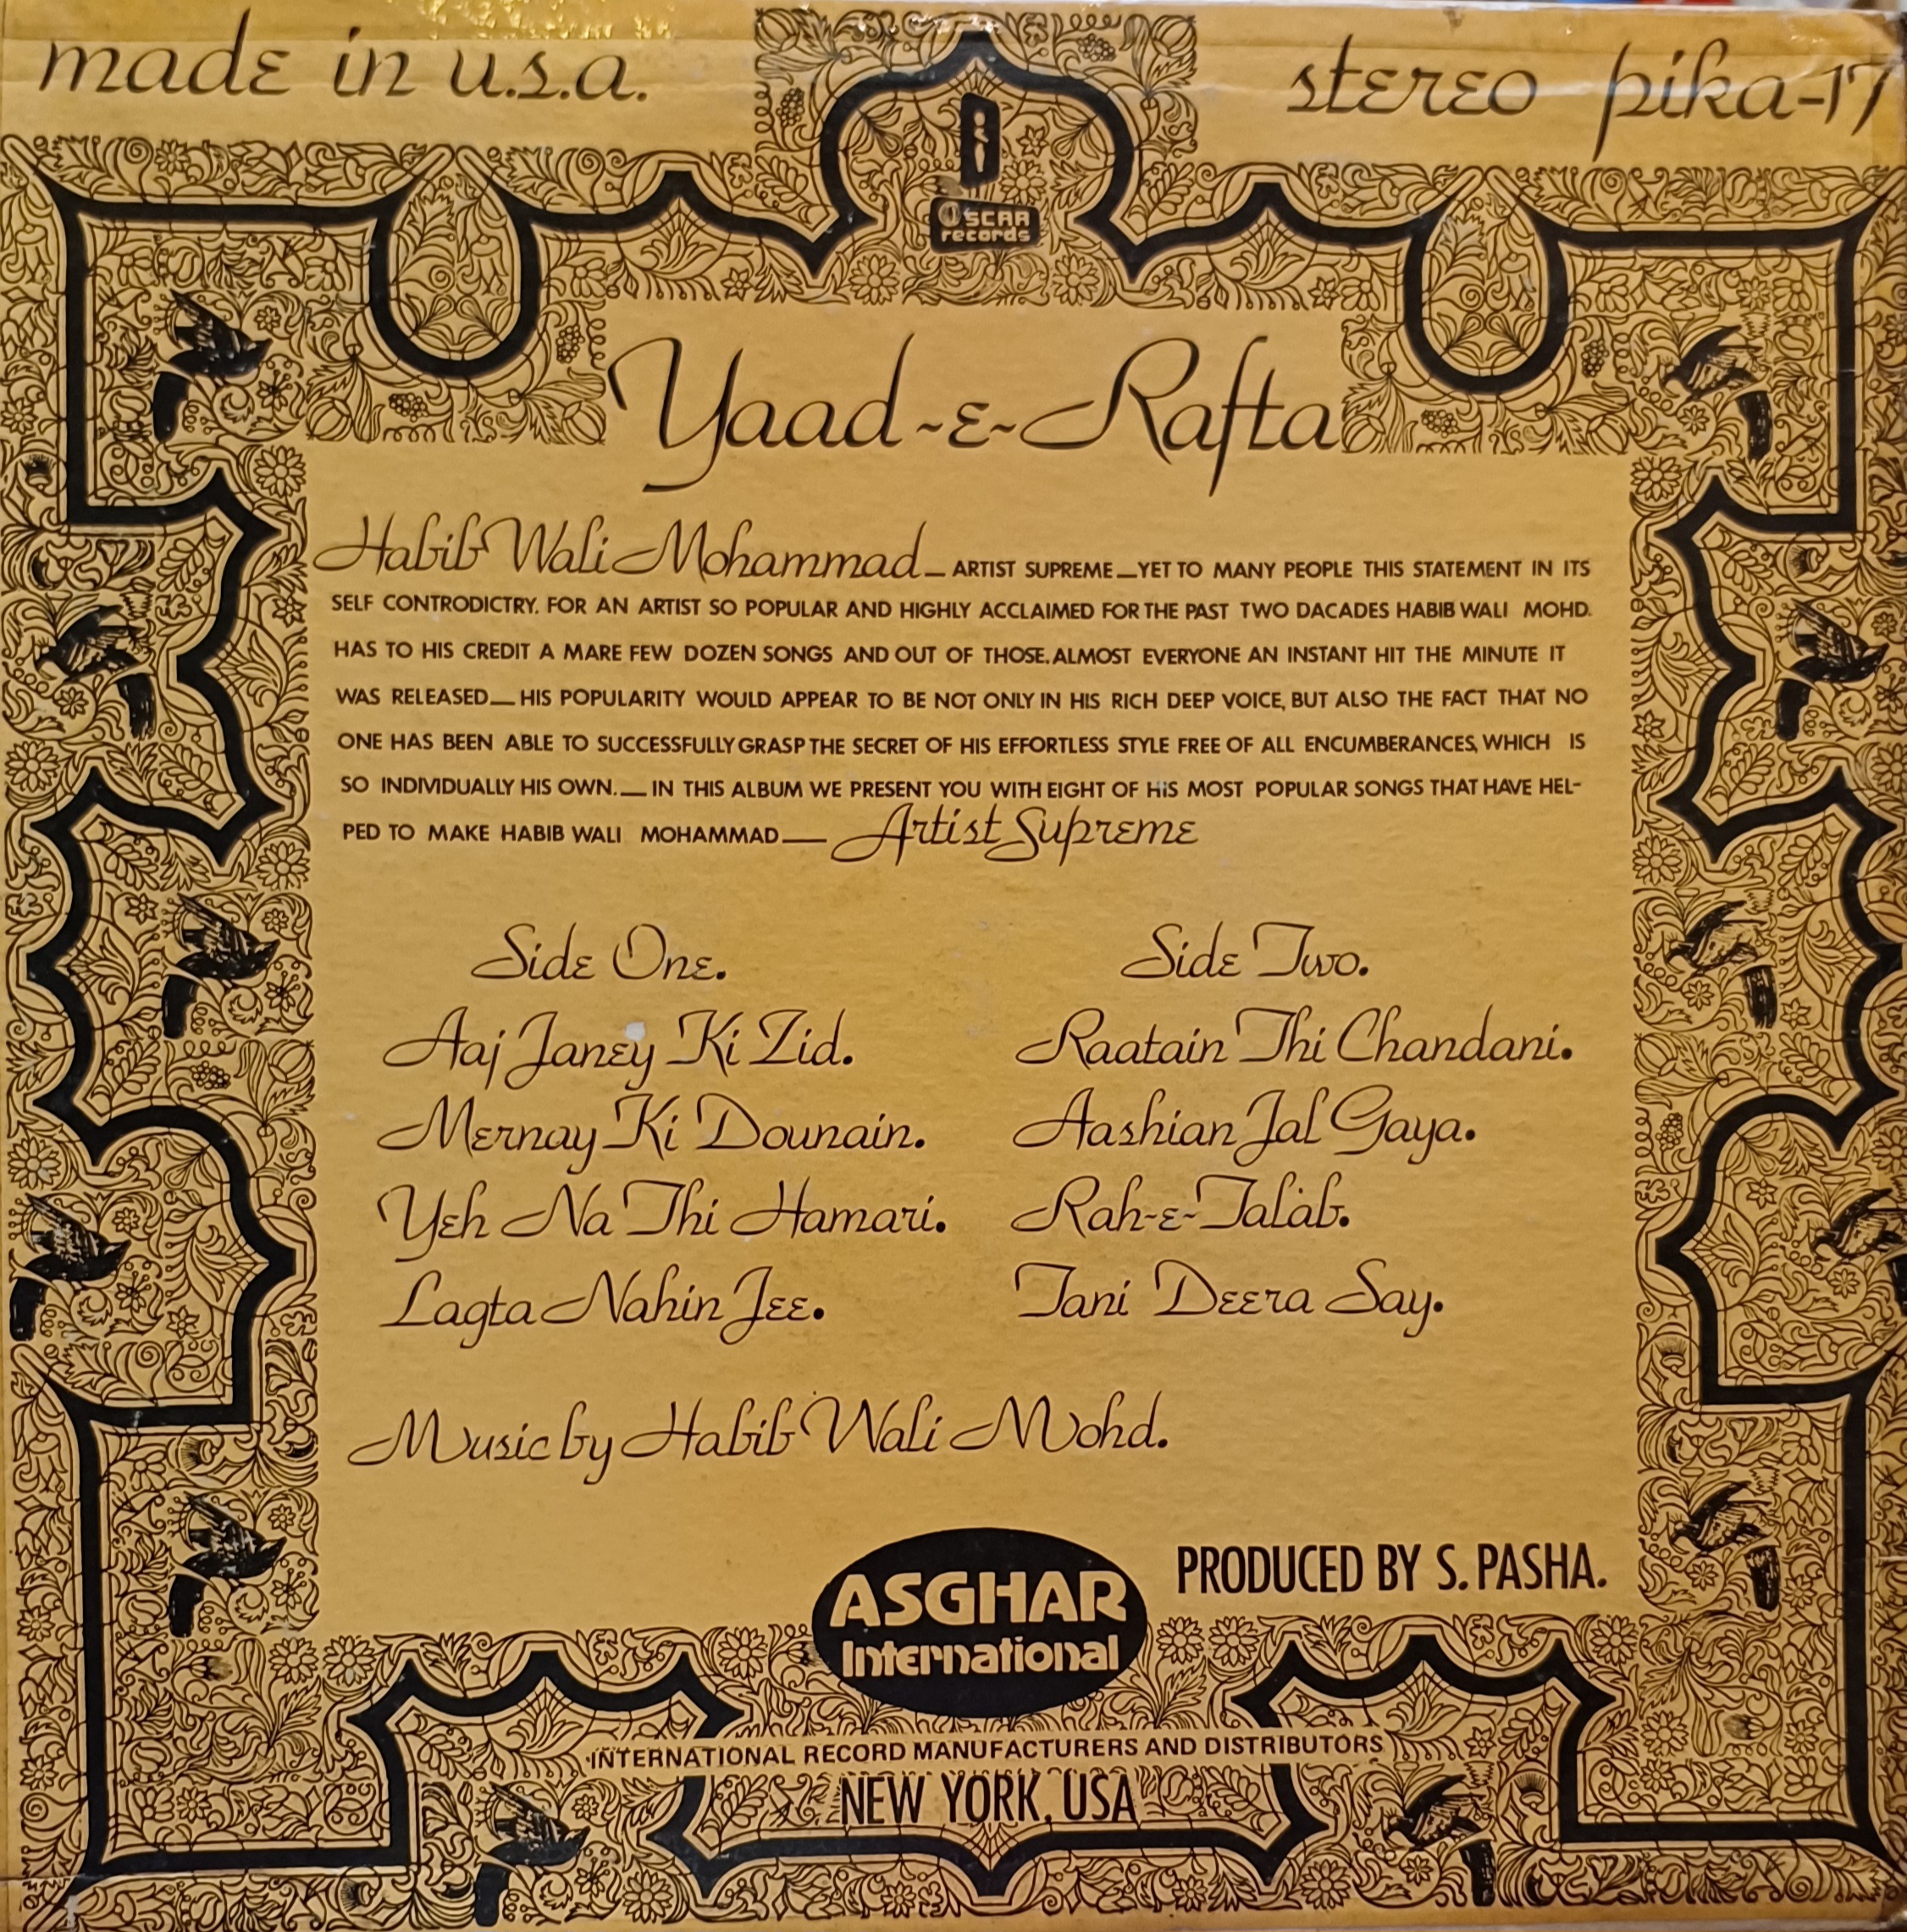 made in u.s.a.
stereo pika-17
OSCAR
records
Yaad-e-Rafta
Habib Wali Mohammad — ARTIST SUPREME — YET TO MANY PEOPLE THIS STATEMENT IN ITS
SELF CONTRODICTRY. FOR AN ARTIST SO POPULAR AND HIGHLY ACCLAIMED FOR THE PAST TWO DACADES HABIB WALI MOHD.
HAS TO HIS CREDIT A MARE FEW DOZEN SONGS AND OUT OF THOSE. ALMOST EVERYONE AN INSTANT HIT THE MINUTE IT
WAS RELEASED — HIS POPULARITY WOULD APPEAR TO BE NOT ONLY IN HIS RICH DEEP VOICE, BUT ALSO THE FACT THAT NO
ONE HAS BEEN ABLE TO SUCCESSFULLY GRASP THE SECRET OF HIS EFFORTLESS STYLE FREE OF ALL ENCUMBERANCES, WHICH IS
SO INDIVIDUALLY HIS OWN. — IN THIS ALBUM WE PRESENT YOU WITH EIGHT OF HIS MOST POPULAR SONGS THAT HAVE HEL-
PED TO MAKE HABIB WALI MOHAMMAD — Artist Supreme
Side One.
Aaj Janey Ki Zid.
Mernay Ki Dounain.
Yeh Na Thi Hamari.
Lagta Nahin Jee.
Side Two.
Raatain Thi Chandani.
Aashian Jal Gaya.
Rah-e-Talab.
Tani Deera Say.
Music by Habib Wali Mohd.
PRODUCED BY S. PASHA.
ASGHAR
International
INTERNATIONAL RECORD MANUFACTURERS AND DISTRIBUTORS
NEW YORK, USA